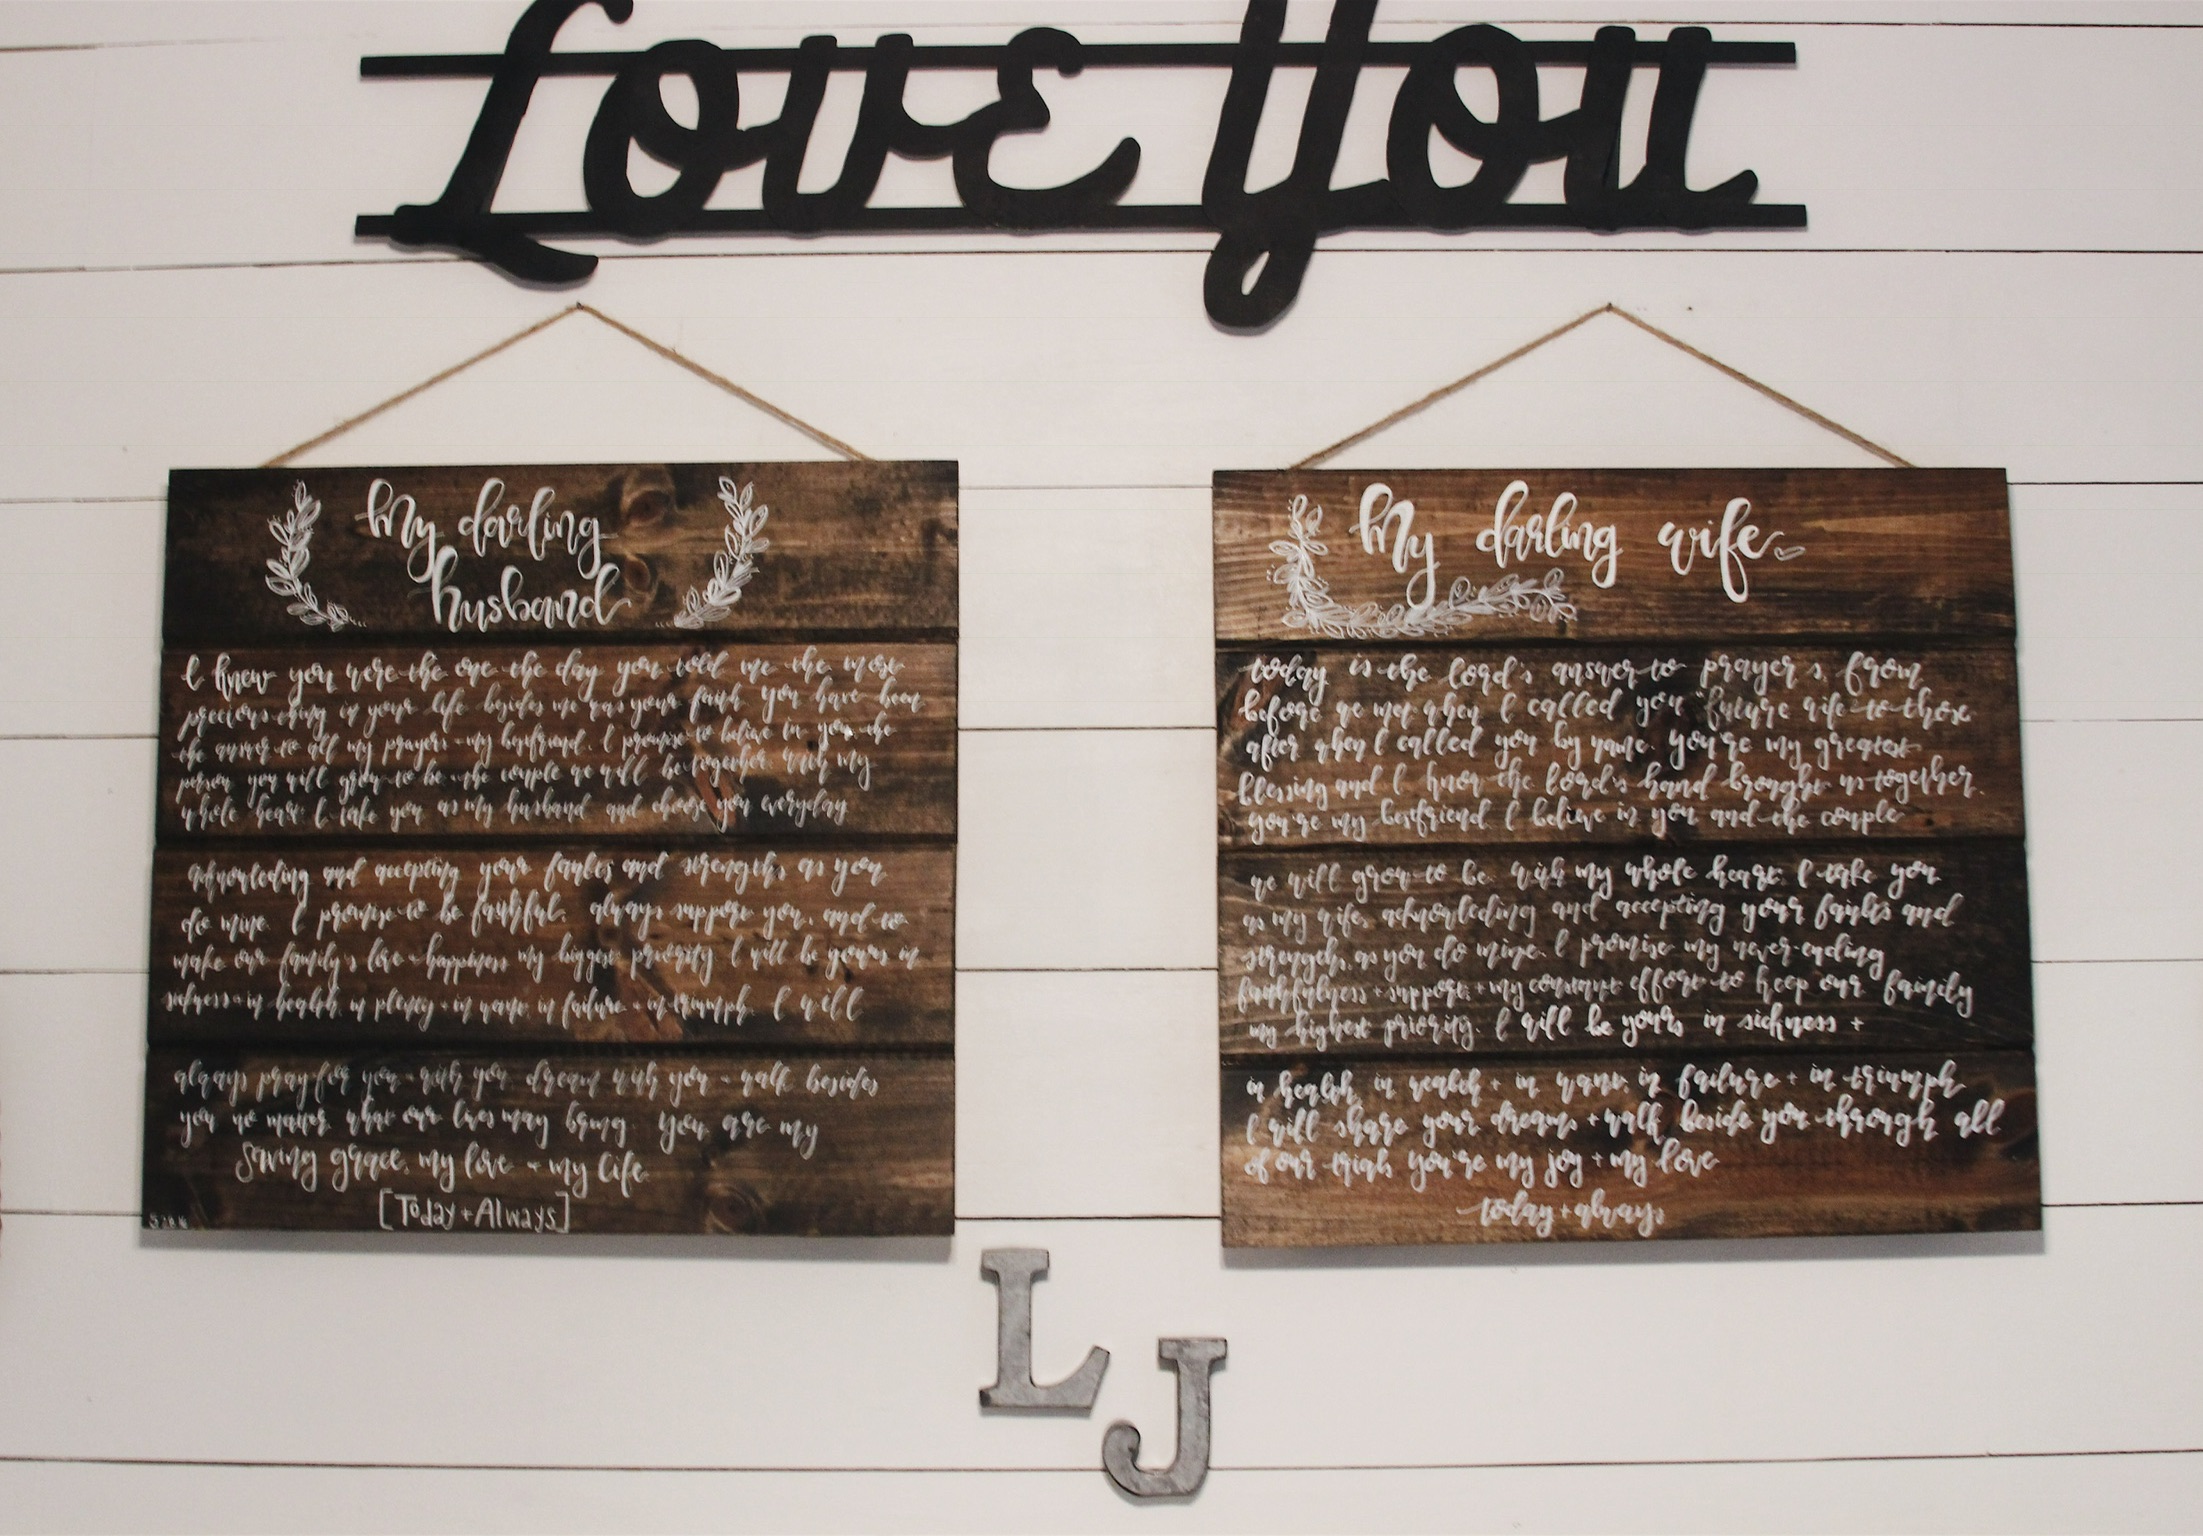 Love You
My darling
husband
I knew you were the one the day you told me the most
precious thing in your life besides me was your faith you have been
the answer to all my prayers - my bestfriend. I promise to believe in you, the
person you will grow to be + the couple we will be together. with my
whole heart I take you as my husband and choose you everyday
acknowleding and accepting your faults and strengths as you
do mine. I promise to be faithful, always support you, and to
make our family's love + happiness my biggest priority I will be yours in
sickness + in health, in plenty + in want, in failure + in triumph. I will
always pray for you + with you dream with you + walk besides
you no matter what our lives may bring. you are my
saving grace, my love + my life
[Today + Always]
My darling wife
today is the lord's answer to prayers, from
before we met when I called you "future wife" to those
after when I called you by name. you're my greatest
blessing and I know the lord's hand brought us together.
you're my bestfriend. I believe in you and the couple
we will grow to be. with my whole heart, I take you
as my wife, acknowleding and accepting your faults and
strengths, as you do mine. I promise my never-ending
faithfulness + support, + my constant effort to keep our family
my highest priority. I will be yours in sickness +
in health, in wealth + in want, in failure + in triumph
I will share your dreams + walk beside you through all
of our trials you're my joy + my love
today + always
L
J